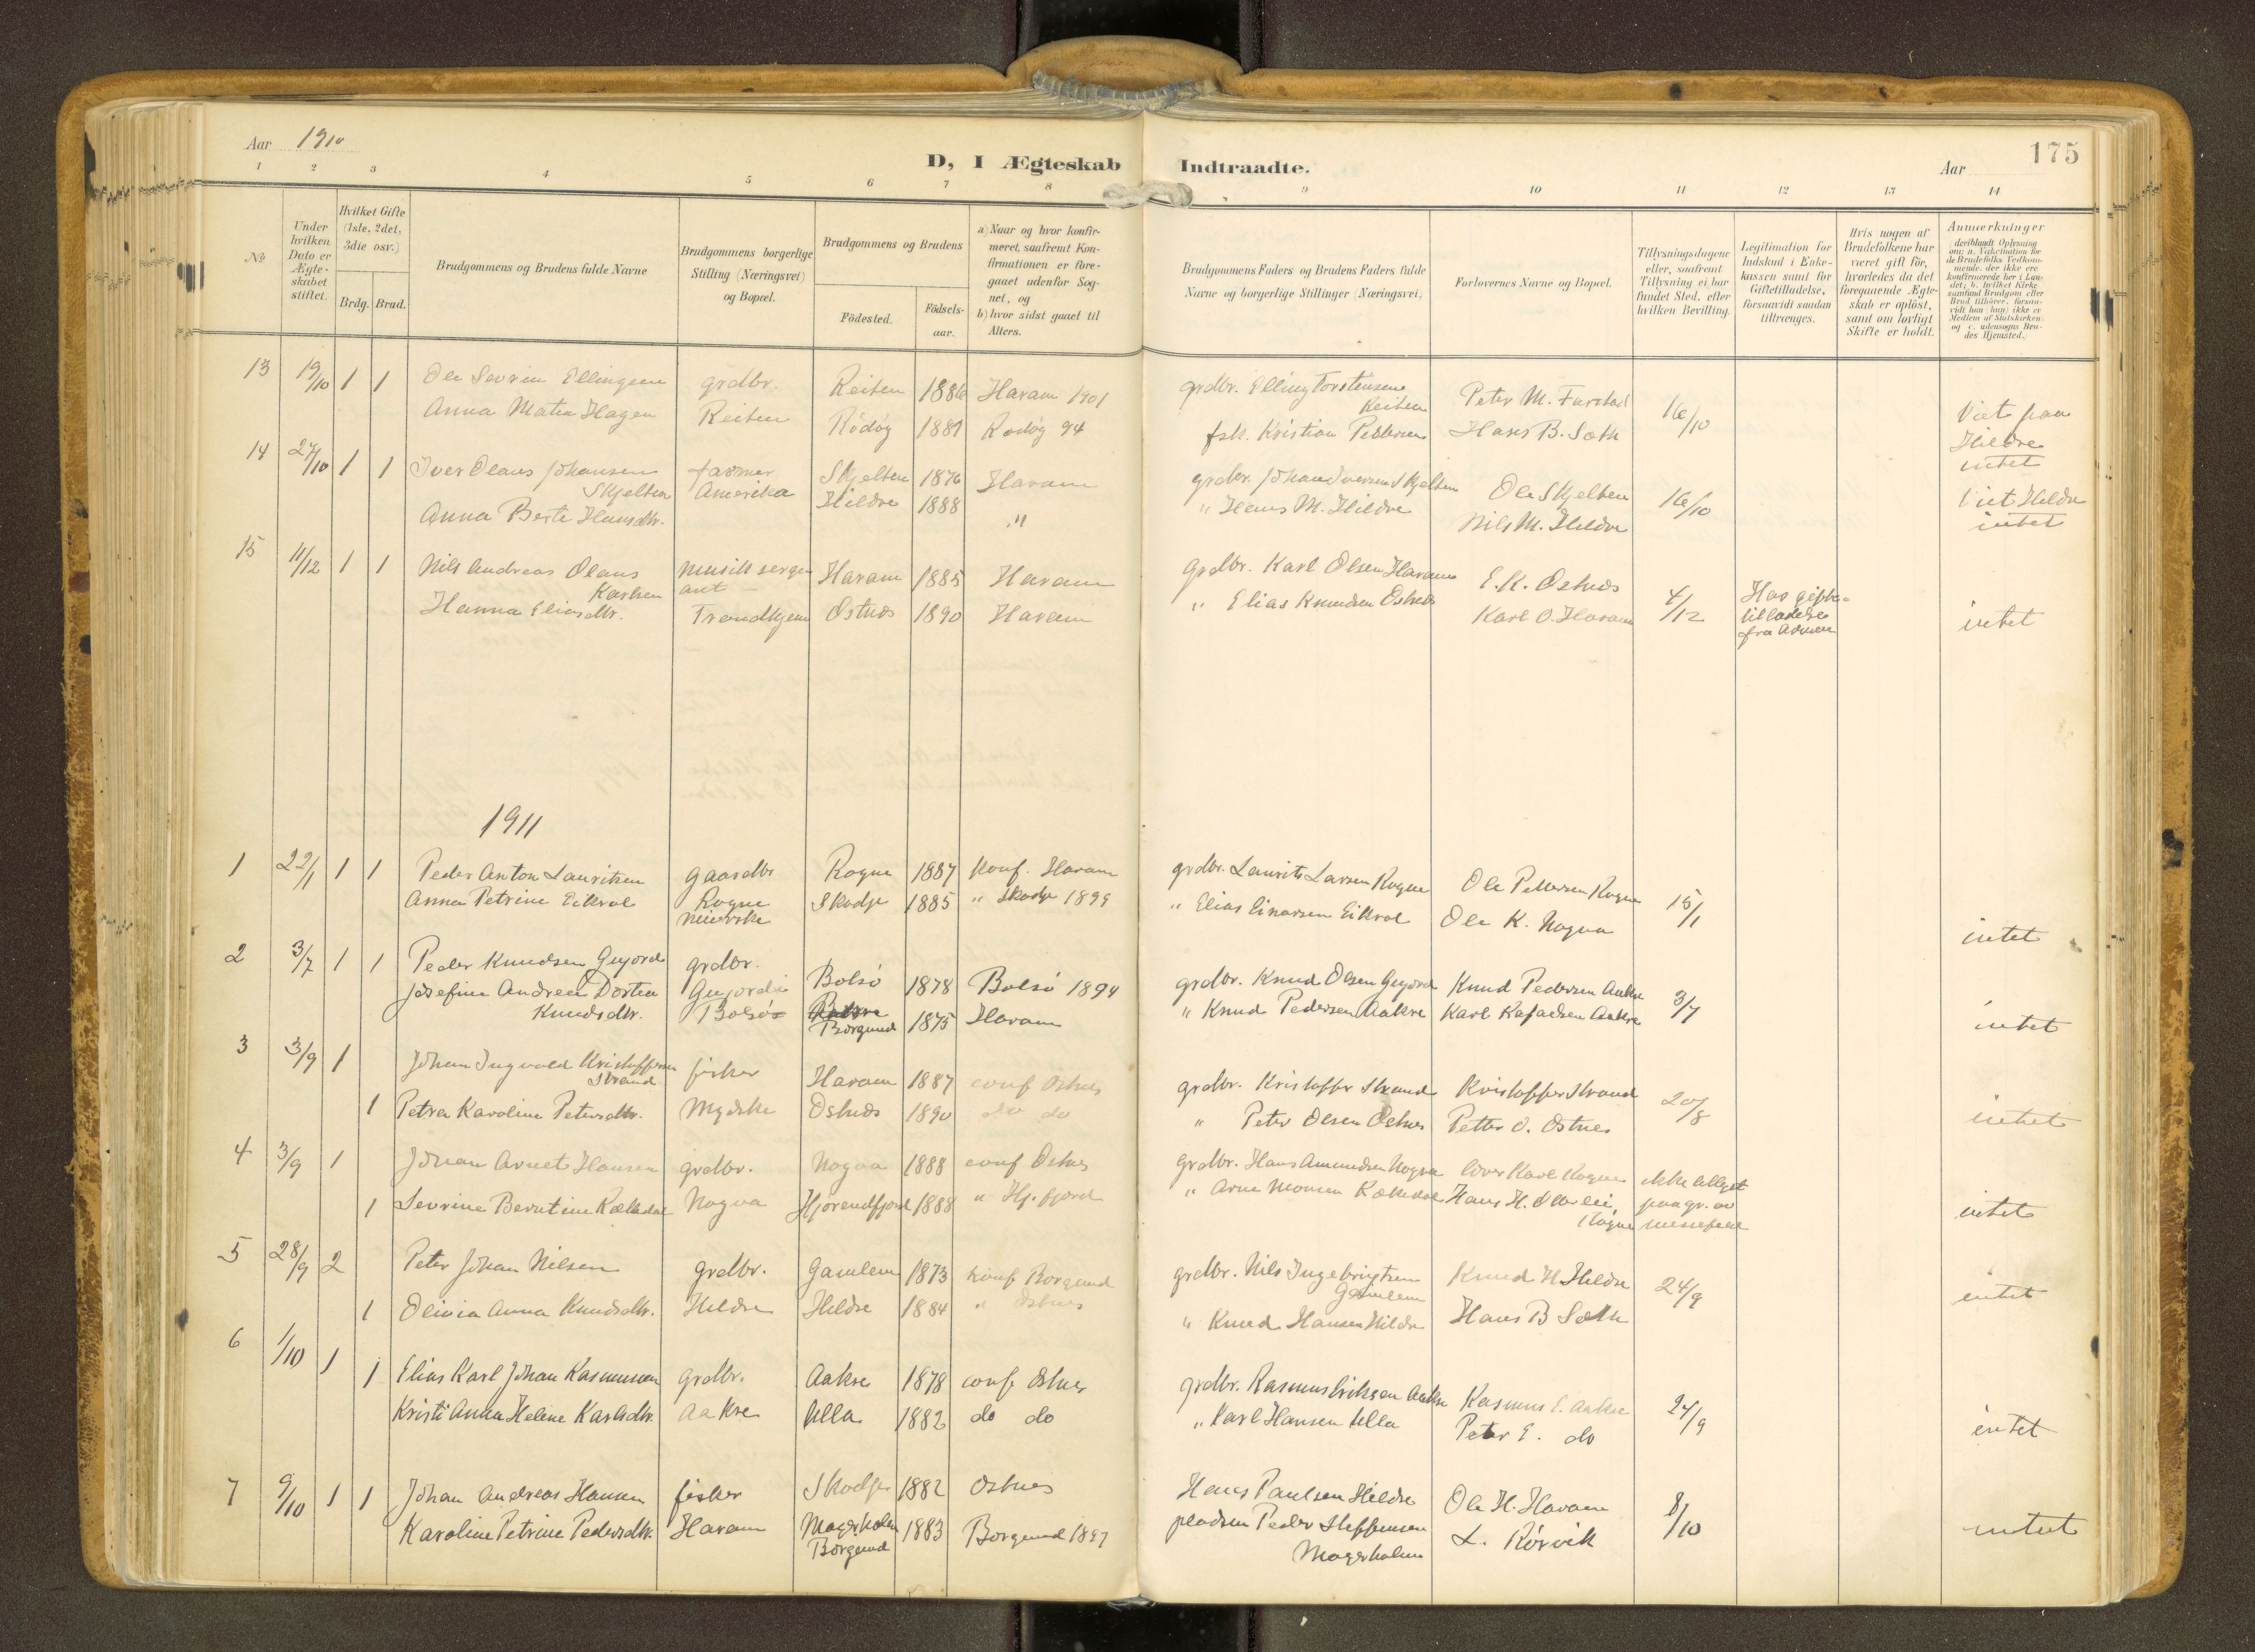 Aar 1910
D, I Ægteskab Indtraadte.
Aar
175
1 2 3 4 5 6 7 8 9 10 11 12 13 14
No
Under hvilken Dato er Ægteskabet stiftet.
Hvilket Gifte (1ste, 2det, 3die osv.)
Brdg. Brud.
Brudgommens og Brudens fulde Navne
Brudgommens borgerlige Stilling (Næringsvei) og Bopæl.
Brudgommens og Brudens
Födested.
Födselsaar.
a) Naar og hvor konfirmeret, saafremt Konfirmationen er foregaaet udenfor Sognet, og
b) hvor sidst gaaet til Alters.
Brudgommens Faders og Brudens Faders fulde Navne og borgerlige Stillinger (Næringsvei)
Forlovernes Navne og Bopæl.
Tillysningsdagene eller, saafremt Tillysning ei har fundet Sted, efter hvilken Bevilling.
Legitimation for Indskud i Enkekassen samt for Giftetilladelse, forsaavidt saadan tiltrænges.
Hvis nogen af Brudefolkene har været gift før, hvorledes da det foregaaende Ægteskab er oplöst, samt om lovligt Skifte er holdt.
Anmærkninger
deriblandt Oplysning om: a. Vakcination for de Brudefolks Vedkommende, der ikke ere konfirmerede her i Landet; b. hvilket Kirkesamfund Brudgom eller Brud tilhörer, forsaavidt han (hun) ikke er Medlem af Statskirken; og c. udensogns Brudes Hjemsted.
13 19/10 1 1 Ole Sevrin Ellingsen grdbr. Reiten 1886 Haram 1901 grdbr. Elling Torstensen Reiten Peter M. Farstad 16/10 Viet paa
Anna Matea Hagen Reiten Rödöy 1881 Rodöy 94 fsk. Kristian Pedersen Hans B. Sæth Hildre
intet
14 27/10 1 1 Iver Olaus Johansen Skjelten farmer Skjelten 1876 Haram grdbr. Johan Iversen Skjelten Ole Skjelten 16/10 Viet Hildre
Anna Berte Hansdtr. Amerika Hildre 1888 " " Hans M. Hildre Nils M. Hildre intet
15 11/12 1 1 Nils Andreas Olaus Karlsen musik sergeant Haram 1885 Haram grdbr. Karl Olsen Haram E. K. Östnes 4/12 Har gifte-
Hanna Eliasdtr. Trondhjem Östnes 1890 Haram " Elias Knudsen Östnes Karl O. Haram tilladelse intet
fra
1911
1 22/1 1 1 Peder Anton Lauritsen gaardbr Rogne 1887 konf. Haram grdbr. Laurits Larsen Rogne Ole Pettersen Rogne 15/1
Anna Petrine Eikrol Rogne Skodje 1885 " Skodje 1899 " Elias Einarsen Eikrol Ole K. Nogva intet
2 3/7 1 1 Peder Knudsen Gujord grdbr. Bolsö 1878 Bolsö 1894 grdbr. Knud Olsen Gujord Knud Pedersen Aakre 3/7
Josefine Andrea Dortea Knudsdtr. Gujordei Bolsö Borgund 1875 Haram " Knud Pedersen Aakre Karl Rafaelsen Aakre intet
3 3/9 1 Johan Ingvald Kristoffersen Strand fisker Haram 1887 conf Östnes grdbr. Kristoffer Strand Kristoffer Strand 20/8
1 Petra Karoline Petersdtr. Mydske Östnes 1890 do do " Peter Olsen Östnes Petter O. Östnes intet
4 3/9 1 Johan Arnet Hansen grdbr. Nogva 1888 conf Östnes grdbr. Hans Amundsen Nogva Iver Karl Rogne ikke tillyst
1 Sevrine Berntine Kolkedal Nogva Hjörendfjord 1888 " Hj. fjord " Arne Monsen Hans H. Rogne paa gr. av messefald intet
5 28/9 2 Peter Johan Nilsen grdbr. Gamlem 1873 konf Borgund grdbr. Nils Ingebrigtsen Gamlem Knud H. Hildre 24/9
1 Olivia Anna Knudsdtr. Hildre Hildre 1884 " Östnes " Knud Hansen Hildre Hans B Sæth intet
6 1/10 1 1 Elias Karl Johan Rasmussen grdbr. Aakre 1878 conf Östnes grdbr. Rasmus Eriksen Aakre Rasmus E. Aakre 24/9
Kristi Anna Helene Karlsdtr. Aakre Ulla 1882 do do " Karl Hansen Ulla Peter E. do intet
7 9/10 1 1 Johan Andreas Hansen fisker Skodje 1882 Östnes Hans Paulsen Hildre Ole H. Haram 8/10
Karoline Petrine Pedersdtr. Haram Magerholm Borgund 1883 Borgund 1897 pladsm Peder Steffensen Magerholm L. Rörvik intet